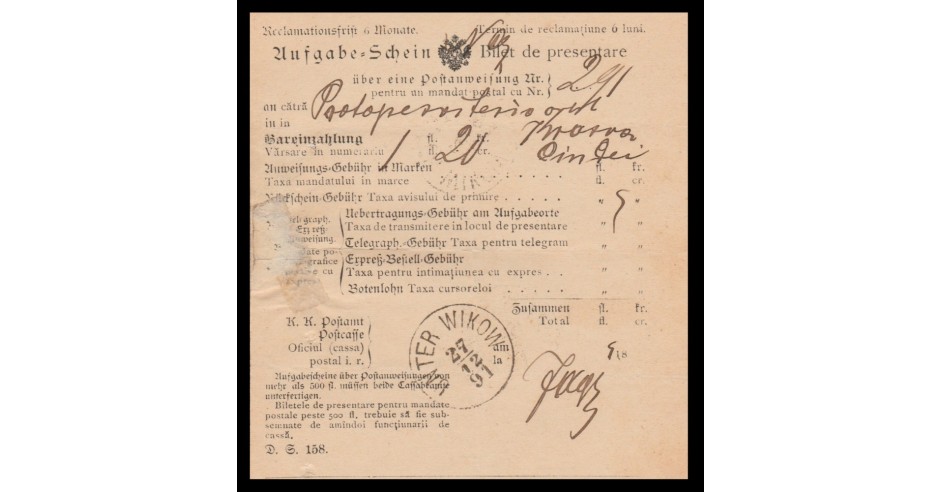 Reclamationsfrist 6 Monate. Termin de reclamațiune 6 luni.
Aufgabe-Schein Bilet de presentare
über eine Postanweisung Nr. 291
pentru un mandat poștal cu Nr.
an cătră
in in
Bareinzahlung fl. kr.
Vărsare în numerariu 1 20 cr.
Anweisungs-Gebühr in Marken fl. kr.
Taxa mandatului in marce fl. cr.
Rückschein-Gebühr Taxa avisului de primire " "
Telegraph. Expreß- Anweisung. Uebertragungs-Gebühr am Aufgabeorte
Taxa de transmitere in locul de presentare " "
Telegraph.-Gebühr Taxa pentru telegram " "
Expreß-Bestell-Gebühr
Taxa pentru intimațiunea cu expres . . " "
Botenlohn Taxa cursoreloi " "
Zusammen fl. kr.
Total fl. cr.
K. K. Postamt
Postcasse
Oficiul (cassa)
postal i. r.
UNTER WIKOW
25/12
91
am
la
18
Aufgabescheine über Postanweisungen von
mehr als 500 fl. müssen beide Cassabeamte
unterfertigen.
Biletele de presentare pentru mandate
postale peste 500 fl. trebuie să fie sub-
semnate de amindoi funcționarii de
cassă.
D. S. 158.